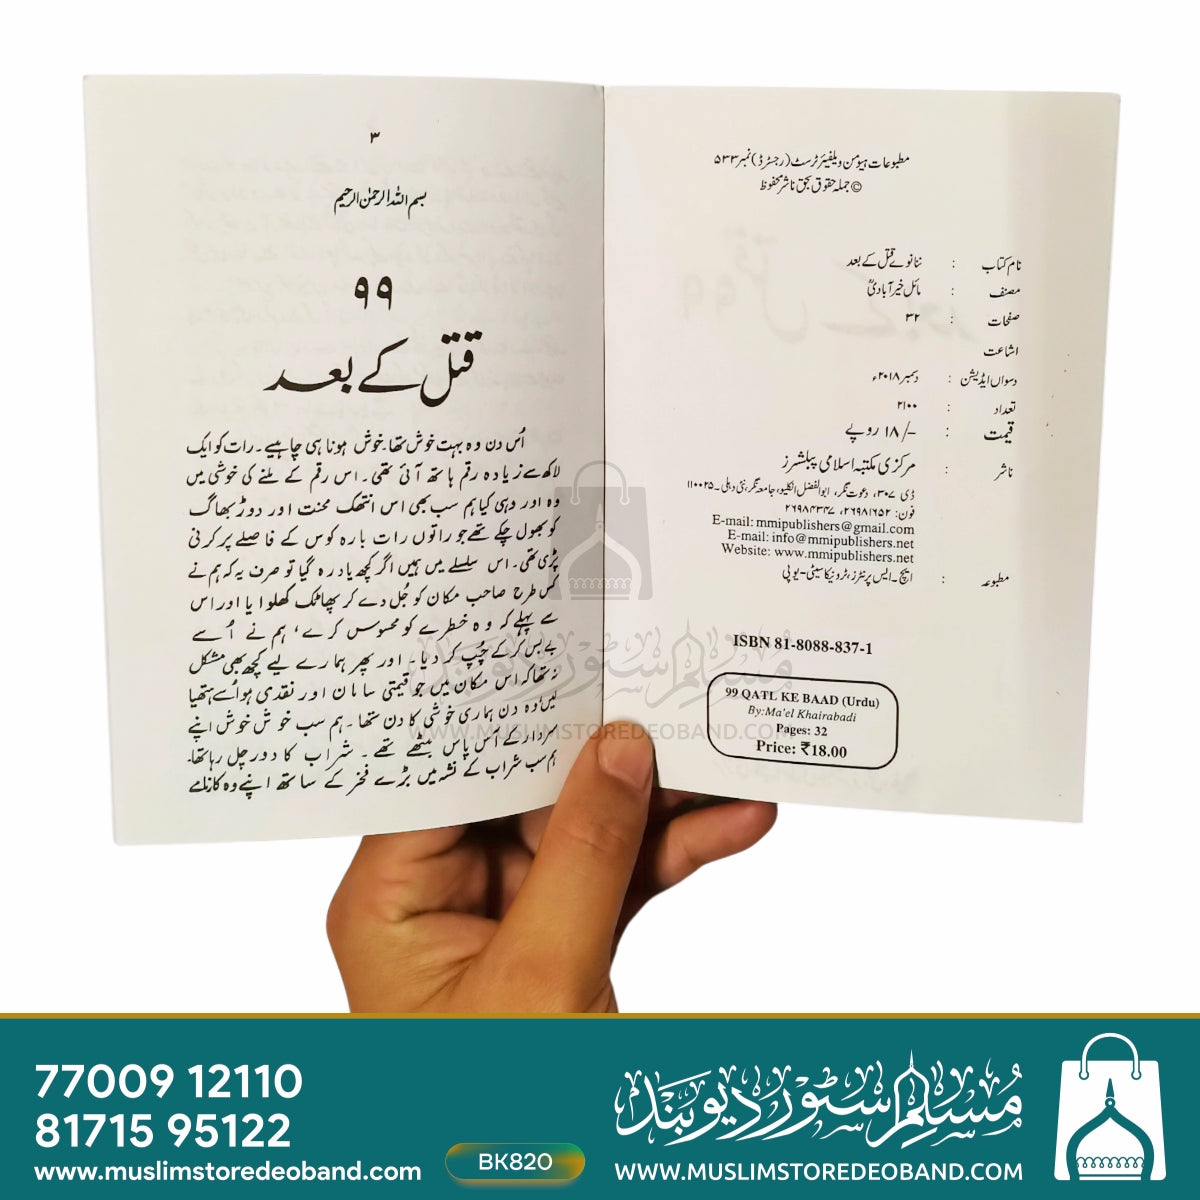 مطبوعات ہیومن ویلفیئر ٹرسٹ (رجسٹرڈ) نمبر ۵۳۳
© جملہ حقوق بحق ناشر محفوظ
نام کتاب : ننانوے قتل کے بعد
مصنف : مائل خیرآبادیؒ
صفحات : ۳۲
اشاعت
دسواں ایڈیشن : دسمبر ۲۰۱۸ء
تعداد : ۲۱۰۰
قیمت : ۱۸/- روپے
ناشر : مرکزی مکتبہ اسلامی پبلشرز
ڈی ۳۰۷، دعوت نگر، ابوالفضل انکلیو، جامعہ نگر، نئی دہلی۔۱۱۰۰۲۵
فون: ۲۶۹۸۱۶۵۲، ۲۶۹۸۴۳۴۷
E-mail: mmipublishers@gmail.com
E-mail: info@mmipublishers.net
Website: www.mmipublishers.net
مطبوعہ : ایچ۔ایس پرنٹرز، ٹرونیکا سیٹی۔یوپی
ISBN 81-8088-837-1
99 QATL KE BAAD (Urdu)
By:Ma'el Khairabadi
Pages: 32
Price: ₹18.00
۳
بسم اللہ الرحمٰن الرحیم
۹۹
قتل کے بعد
اُس دن وہ بہت خوش تھا۔ خوش ہونا ہی چاہیے۔ رات کو ایک
لاکھ سے زیادہ رقم ہاتھ آئی تھی۔ اس رقم کے ملنے کی خوشی میں
وہ اور وہی کیا ہم سب بھی اس انتھک محنت اور دوڑ بھاگ
کو بھول چکے تھے جو راتوں رات بارہ کوس کے فاصلے پر کرنی
پڑی تھی۔ اس سلسلے میں ہمیں اگر کچھ یاد رہ گیا تو صرف یہ کہ ہم نے
کس طرح صاحب مکان کو جُل دے کر پھاٹک کھلوایا اور اس
سے پہلے کہ وہ خطرے کو محسوس کرے، ہم نے اُسے
بے بس کر کے چُپ کر دیا۔ اور پھر ہمارے لیے کچھ بھی مشکل
نہ تھا کہ اس مکان میں جو قیمتی سامان اور نقدی ہو اُسے ہتھیا
لیں وہ دن ہماری خوشی کا دن تھا۔ ہم سب خوش خوش اپنے
سردار کے آس پاس بیٹھے تھے۔ شراب کا دور چل رہا تھا۔
ہم سب شراب کے نشہ میں بڑے فخر کے ساتھ اپنے وہ کارنامے
مسلم سٹور دیوبند
WWW.MUSLIMSTOREDEOBAND.COM
77009 12110
81715 95122
www.muslimstoredeoband.com
BK820
مسلم سٹور دیوبند
WWW.MUSLIMSTOREDEOBAND.COM